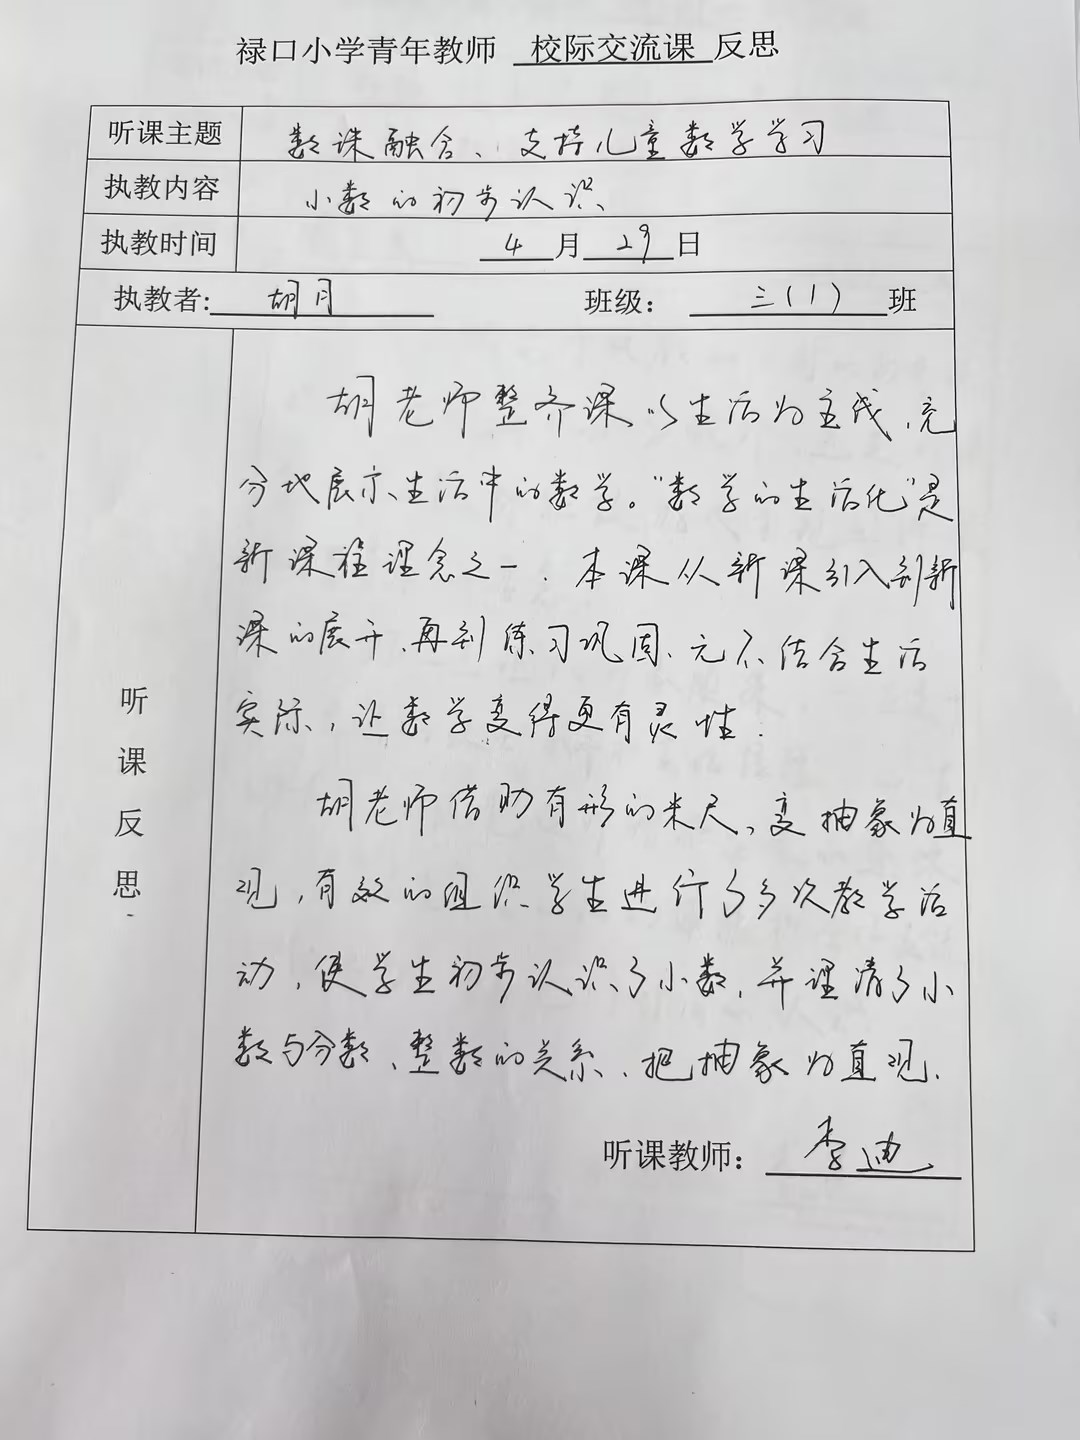 禄口小学青年教师 校际交流课 反思
听课主题 数课融合、支持儿童数学学习
执教内容 小数的初步认识
执教时间 4月29日
执教者: 胡月 班级: 三(1)班
听课反思
胡老师整齐课以生活为主线,充
分地展示生活中的数学。“数学的生活化”是
新课程理念之一.本课从新课引入到新
课的展开,再到练习巩固、无不结合生活
实际,让数学变得更有灵性.
胡老师借助有形的米尺,变抽象为直
观,有效的组织学生进行了多次教学活
动,使学生初步认识了小数,并理清了小
数与分数、整数的关系、把抽象为直观.
听课教师: 李迪